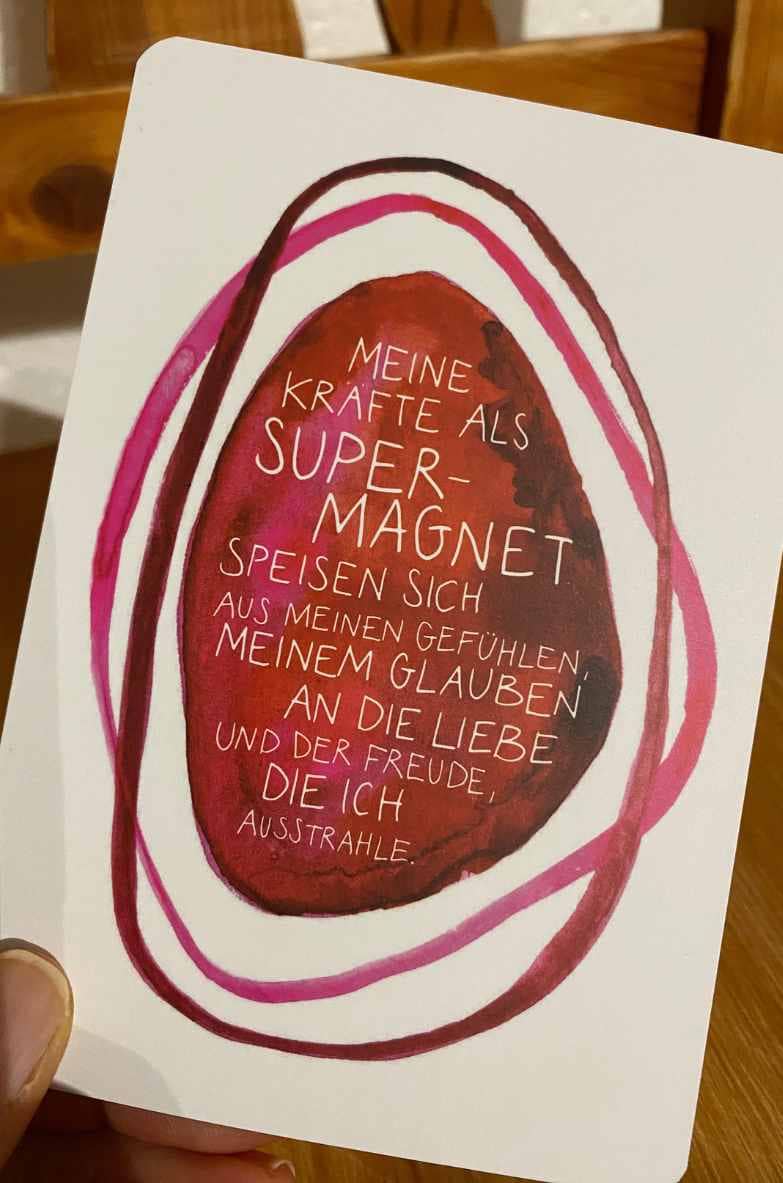 MEINE
KRÄFTE ALS
SUPER-
MAGNET
SPEISEN SICH
AUS MEINEN GEFÜHLEN,
MEINEM GLAUBEN
AN DIE LIEBE
UND DER FREUDE,
DIE ICH
AUSSTRAHLE.